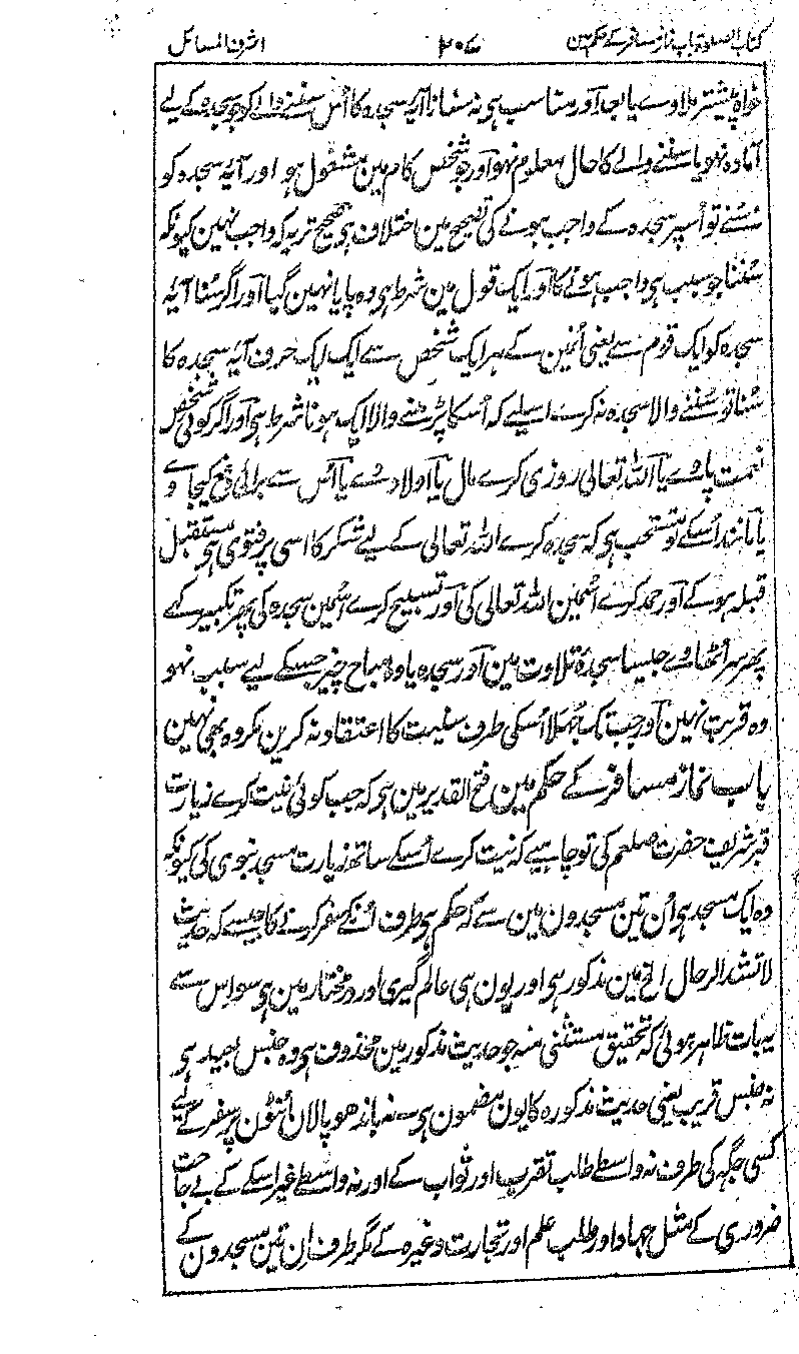 کتاب الصلوٰۃ باب نماز مسافر کے حکم مین ۲۰۷ اشرف المسائل
خواہ پیشتر ملاوے یا بعد اور مناسب ہو نہ سنانا آیہ سجدہ کا اُس سننے والے کو جو سجدہ کے لیے
آمادہ نہو یا سننے والے کا حال معلوم نہو اور جو شخص کام مین مشغول ہو اور آیہ سجدہ کو
سُنے تو اُسپر سجدہ کے واجب ہونے کی تصحیح مین اختلاف ہو صحیح تر یہ کہ واجب نہین کیونکہ
سُننا جو سبب ہی واجب ہونے کا اور ایک قول مین شرط ہی وہ پایا نہین گیا اور اگر سُنا آیہ
سجدہ کو ایک قوم سے یعنی اُنمین کے ہر ایک شخص سے ایک ایک حرف آیہ سجدہ کا
سُنا تو سُننے والا سجدہ نہ کرے اسلیے کہ اُسکا پڑھنے والا ایک ہونا شرط ہی اور اگر کوئی شخص
نعمت پاوے یا اللہ تعالی روزی کرے مال یا اولاد دے یا اُس سے برائی دفع کیجاوے
یا مانند اُسکے تو مستحب ہو کہ سجدہ کرے اللہ تعالی کے لیے شکر کا اسی پر فتوی ہی مستقبل
قبلہ ہو کے اور حمد کرے اُسمین اللہ تعالی کی اور تسبیح کرے اُسمین سجدہ کی پھر تکبیر کہے
پھر سر اُٹھاوے جیسا سجدہ تلاوت مین اور سجدہ یا وہ مباح چیز جسکے لیے سبب نہو
وہ قربت نہین اور جب تک جُہلا اُسکی طرف سنیت کا اعتقاد نہ کرین مکروہ بھی نہین
باب نماز مسافر کے حکم مین فتح القدیر مین ہو کہ جب کوئی نیت کرے زیارت
قبر شریف حضرت صلعم کی تو چاہیے کہ نیت کرے اُسکے ساتھ زیارت مسجد نبوی کی کیونکہ
وہ ایک مسجد ہو اُن تین مسجدون مین سے کہ حکم ہو طرف اُنکے سفر کرنے کا جیسے کہ حدیث
لا تشد الرحال الخ مین مذکور ہو اور یون ہی عالمگیری اور درمختار مین ہو سو اس سے
یہ بات ظاہر ہوئی کہ تحقیق مستثنی منہ جو حدیث مذکور مین محذوف ہو وہ جنس بعید ہو
نہ جنس قریب یعنی حدیث مذکورہ کا یون مضمون ہو۔ نہ باندھو پالان اُنٹون پر سفر کے لیے
کسی جگہ کی طرف نہ واسطے طلب تقرب اور ثواب کے اور نہ واسطے غیر اسکے کے بے حاجت
ضروری کے مثل جہاد اور طلب علم اور تجارت وغیرہ کے مگر طرف اِن تین مسجدون کے